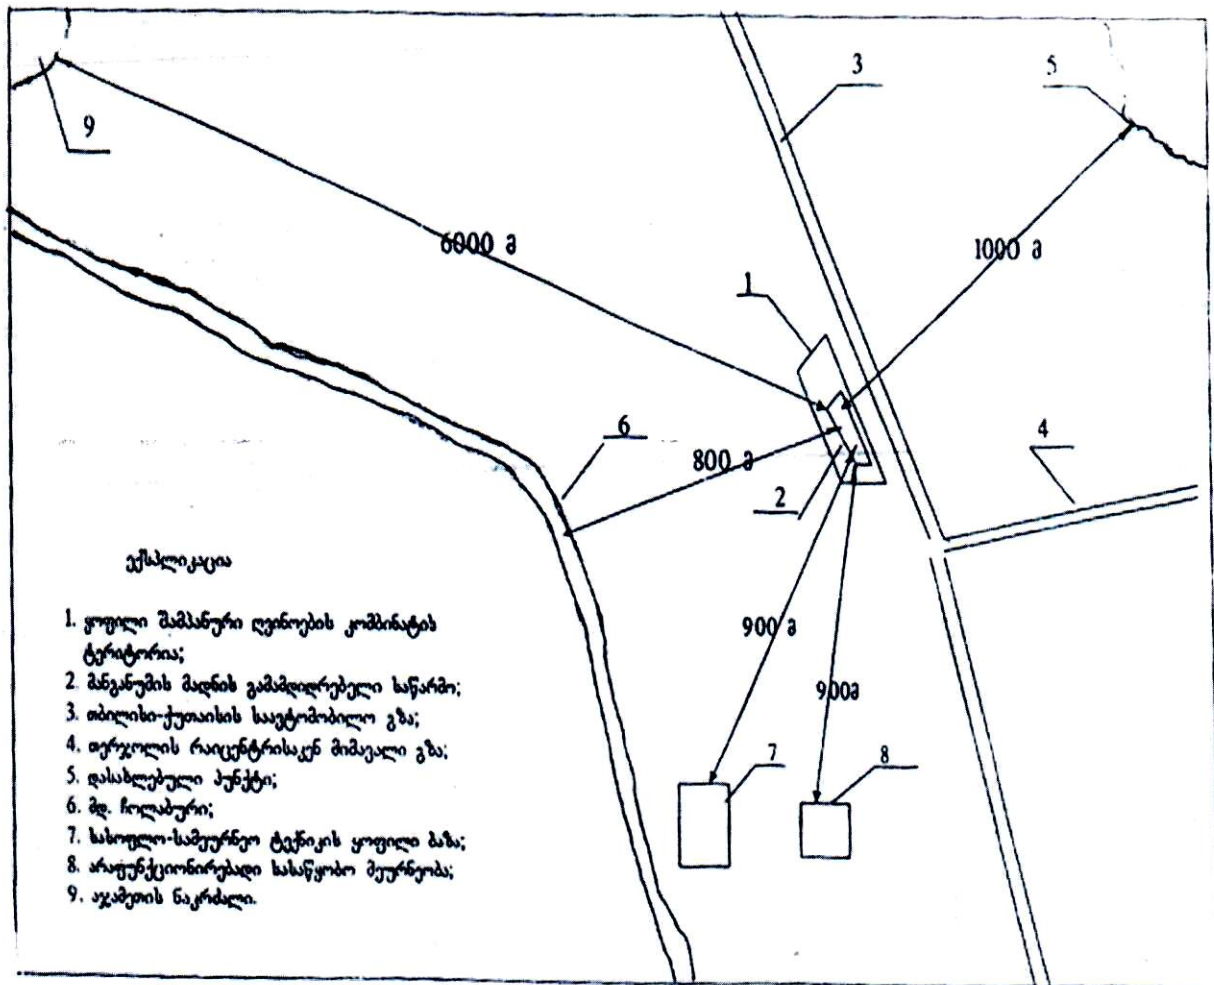 3
5
9
6000 მ
1000 მ
1
6
4
800 მ
2
ექსპლიკაცია
1. ყოფილი შამპანური ღვინოების კომბინატის
ტერიტორია;
2. მანგანუმის მადნის გამამდიდრებელი საწარმო;
3. თბილისი-ქუთაისის საავტომობილო გზა;
4. თერჯოლის რაიცენტრისაკენ მიმავალი გზა;
5. დასახლებული პუნქტი;
6. მდ. ჩოლაბური;
7. სასოფლო-სამეურნეო ტექნიკის ყოფილი ბაზა;
8. არაფუნქციონირებადი სასაწყობო მეურნეობა;
9. აჯამეთის ნაკრძალი.
900 მ
900მ
7
8